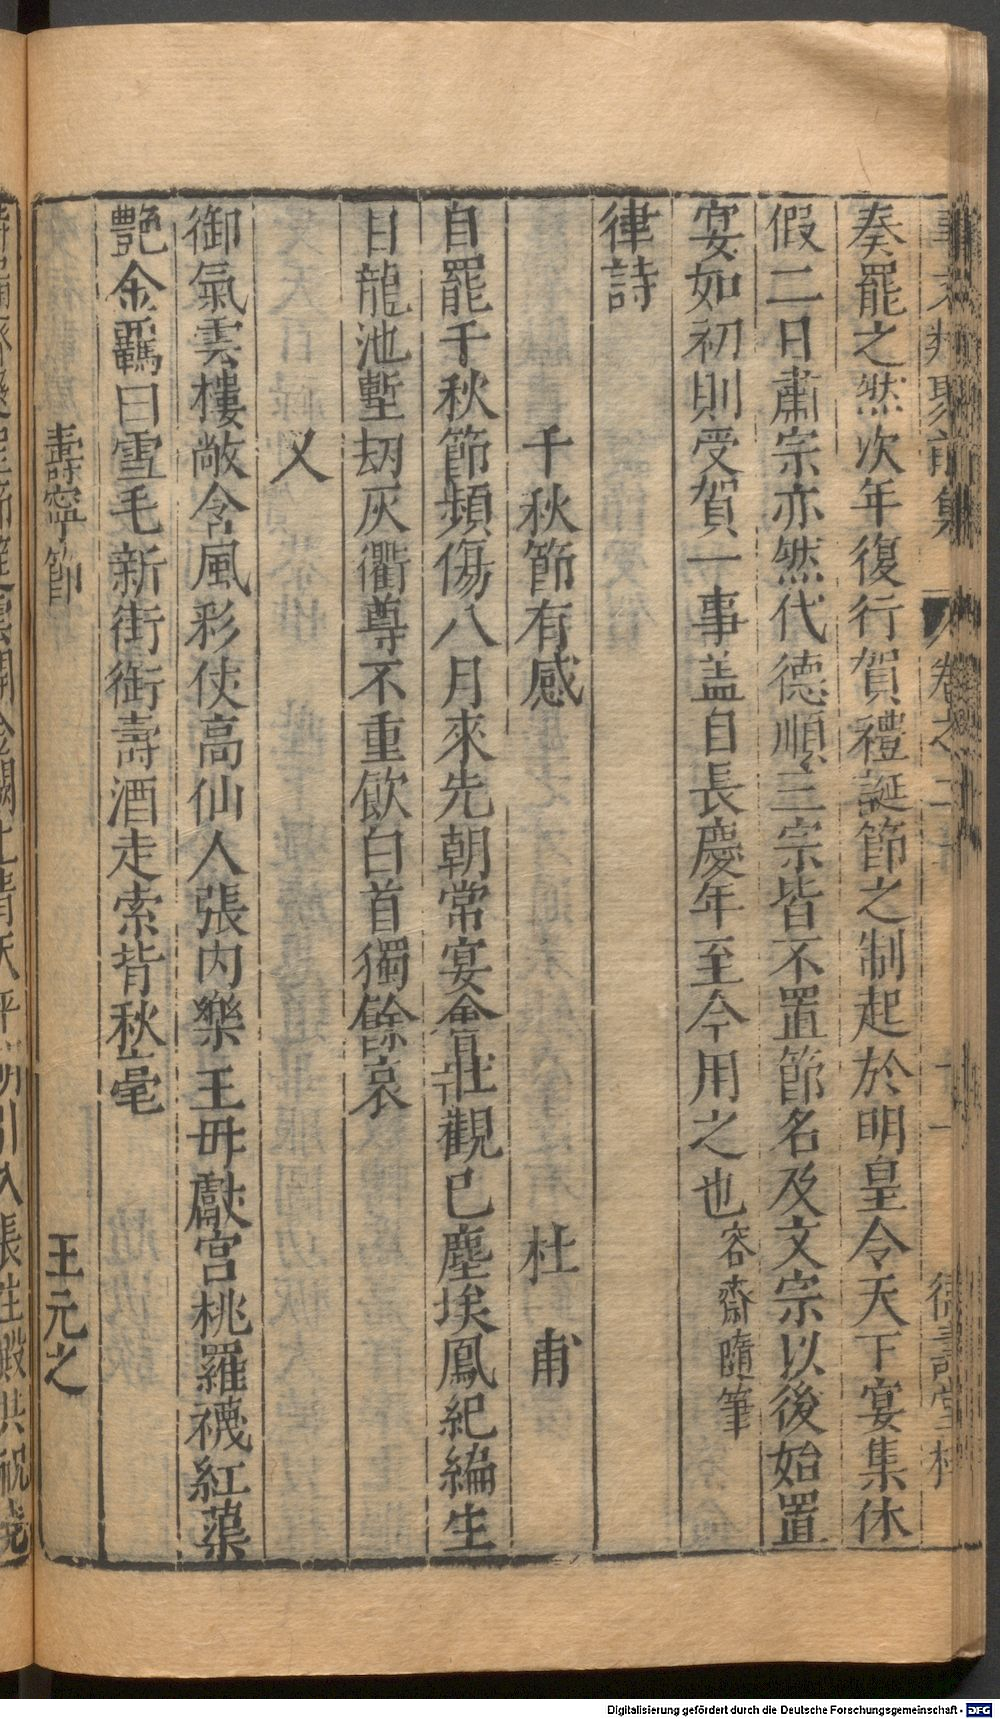 事文類聚前集　卷之二十　十一　德壽堂梓
奏罷之然次年復行賀禮誕節之制起於明皇令天下宴集休
假二日肅宗亦然代德順三宗皆不置節名及文宗以後始置
宴如初則受賀一事盖自長慶年至今用之也容齋隨筆
律詩
千秋節有感　杜甫
自罷千秋節頻傷八月來先朝常宴會壯觀已塵埃鳳紀編生
日龍池塹刼灰衢尊不重飲白首獨餘哀
又
御氣雲樓敞含風彩仗高仙人張内樂王母獻宫桃羅襪紅蕖
艷金羈白雪毛新街銜壽酒走索背秋毫
壽寧節　王元之
雲開金闕 平明引入張 殿共祝堯
Digitalisierung gefördert durch die Deutsche Forschungsgemeinschaft - DFG